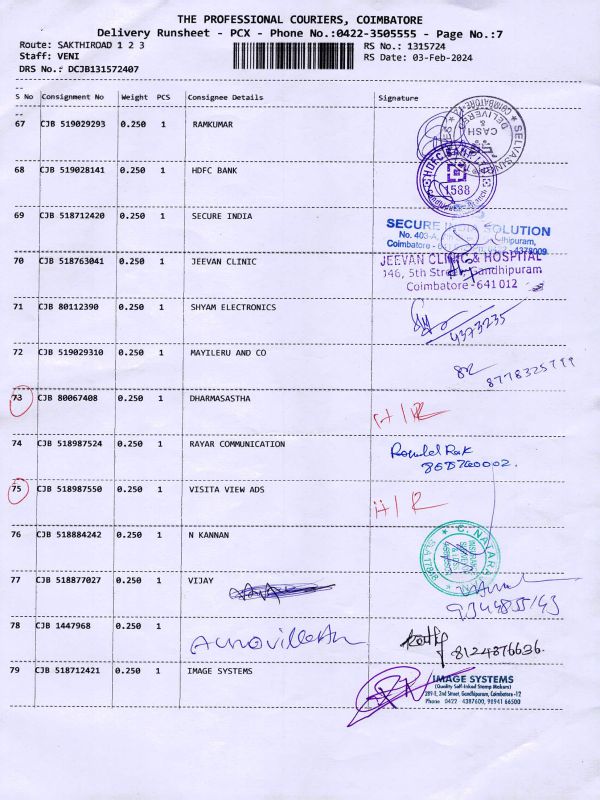 THE PROFESSIONAL COURIERS, COIMBATORE
Delivery Runsheet - PCX - Phone No.:0422-3505555 - Page No.:7
Route: SAKTHIROAD 1 2 3
RS No.: 1315724
Staff: VENI
RS Date: 03-Feb-2024
DRS No.: DCJB131572407
S No Consignment No Weight PCS Consignee Details Signature
67 CJB 519029293 0.250 1 RAMKUMAR
DELIVERED
CASH
68 CJB 519028141 0.250 1 HDFC BANK
HDFC BANK
1588
69 CJB 518712420 0.250 1 SECURE INDIA
SECURE SOLUTION
No. 403-A, dhipuram,
Coimbatore - 4378009
70 CJB 518763041 0.250 1 JEEVAN CLINIC
JEEVAN CLINIC & HOSPITAL
346, 5th Street, Gandhipuram
Coimbatore-641 012
71 CJB 80112390 0.250 1 SHYAM ELECTRONICS
4373235
72 CJB 519029310 0.250 1 MAYILERU AND CO
73 CJB 80067408 0.250 1 DHARMASASTHA
H/R
74 CJB 518987524 0.250 1 RAYAR COMMUNICATION
75 CJB 518987550 0.250 1 VISITA VIEW ADS
H/R
76 CJB 518884242 0.250 1 N KANNAN
C. NATARAJAN
77 CJB 518877027 0.250 1 VIJAY
78 CJB 1447968 0.250 1
8124876636.
79 CJB 518712421 0.250 1 IMAGE SYSTEMS
IMAGE SYSTEMS
(Quality Self-Inked Stamp Makers)
289-E, 2nd Street, Gandhipuram, Coimbatore -12
Phone 0422 - 4387600, 98941 66500